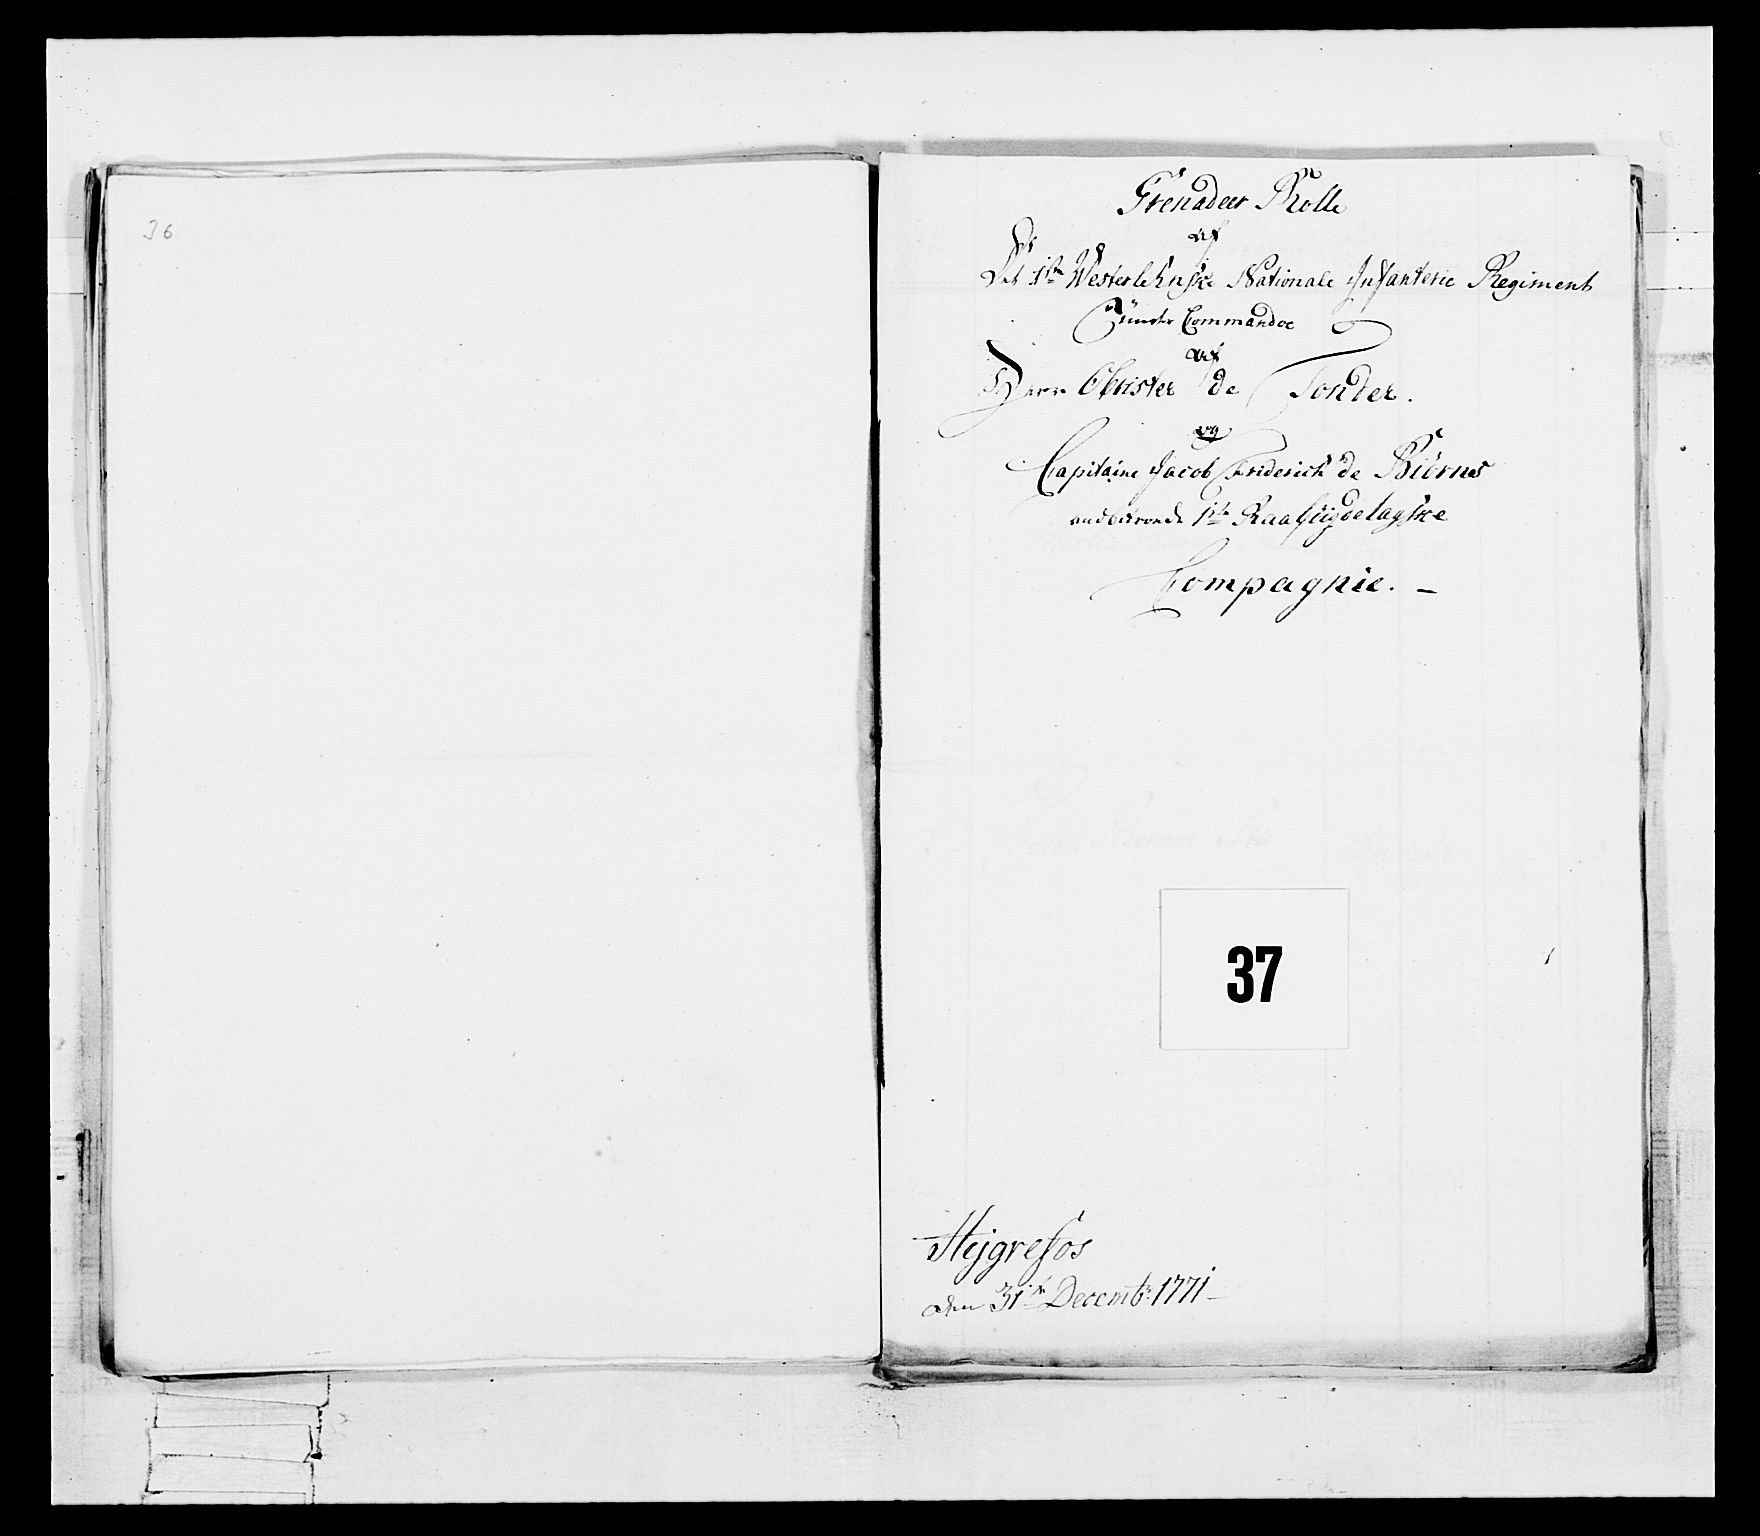 36
Grenadeer Rolle
af
Det 1ste Westerlehnske Nationale Infanterie Regiment
Under Commandoe
af
Herr Obrister de Tonder.
og
Capitaine Jacob Friderich de Biörnes
andbetroede 1ste Raabÿgdelagske
Compagnie. –
37
Nÿgresfos
den 31te Decembr: 1771